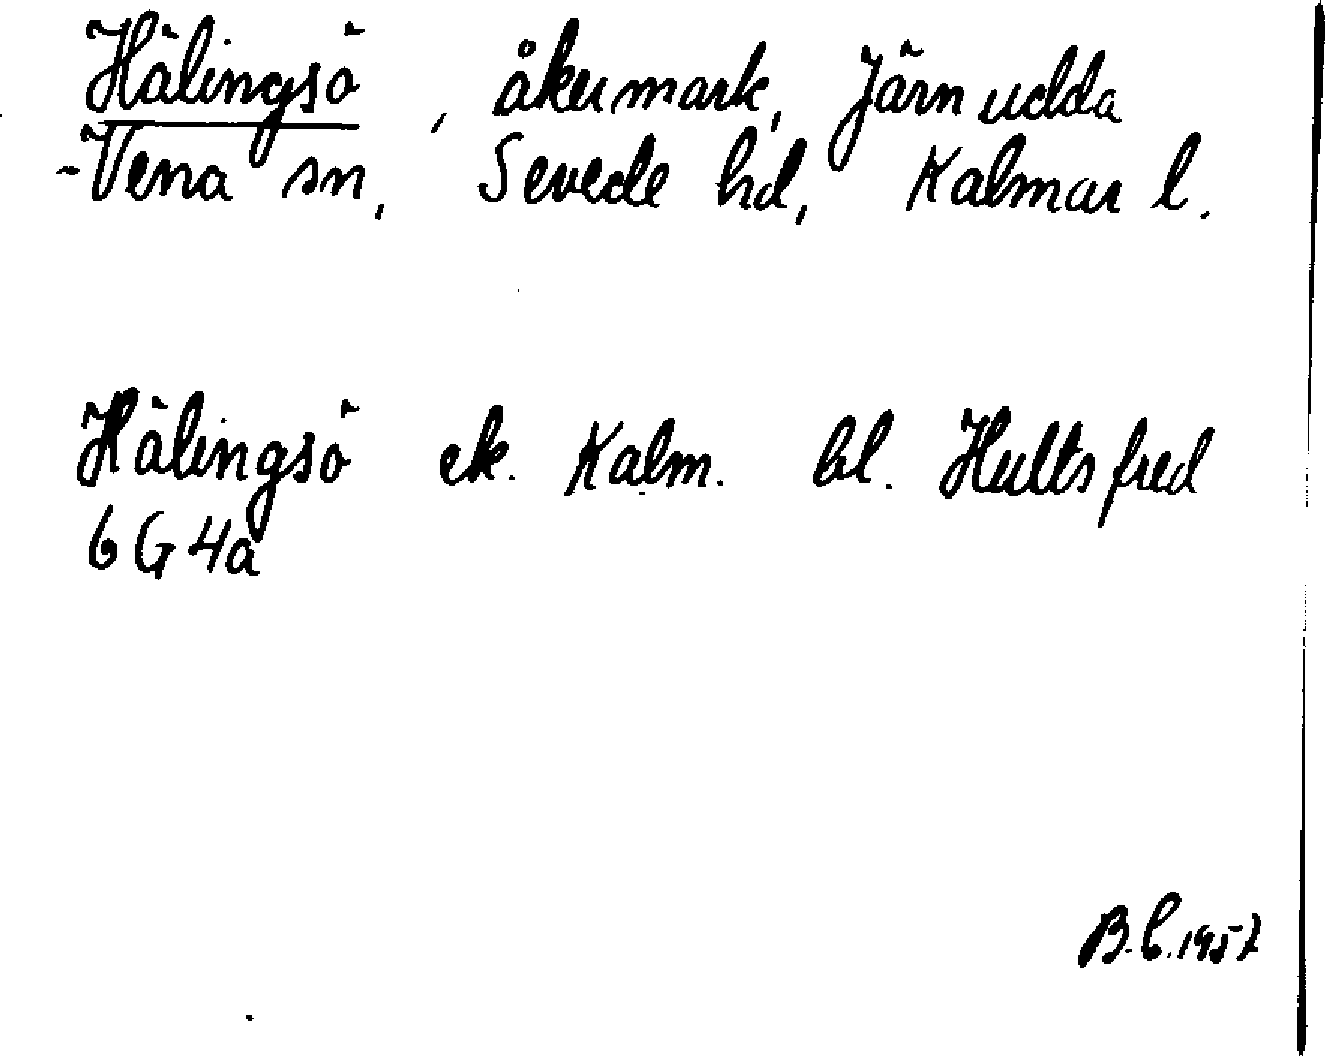 Hälingsö, åkermark, Järnudda
-Vena sn, Sevede hd, Kalmar l.
Hälingsö ek. Kalm. bl. Hultsfred
6 G 4a
B.C. 1957